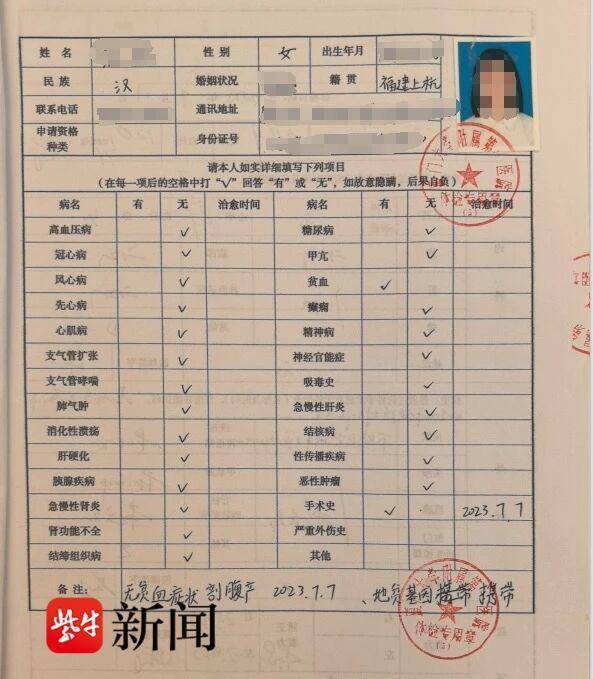 姓名 性别 女 出生年月
民族 汉 婚姻状况 籍贯 福建上杭
联系电话 通讯地址
申请资格种类 身份证号
请本人如实详细填写下列项目
(在每一项后的空格中打“√”回答“有”或“无”,如故意隐瞒,后果自负)
病名 有 无 治愈时间 病名 有 无 治愈时间
高血压病 √ 糖尿病 √
冠心病 √ 甲亢 √
风心病 √ 贫血 √
先心病 √ 癫痫 √
心肌病 √ 精神病 √
支气管扩张 √ 神经官能症 √
支气管哮喘 √ 吸毒史 √
肺气肿 √ 急慢性肝炎 √
消化性溃疡 √ 结核病 √
肝硬化 √ 性传播疾病 √
胰腺疾病 √ 恶性肿瘤 √
急慢性肾炎 √ 手术史 √ 2023.7.7
肾功能不全 √ 严重外伤史
结缔组织病 √ 其他
备注: 无贫血症状 剖腹产 2023.7.7 、地贫基因携带 携带
体检专用章
体检专用章
紫牛新闻